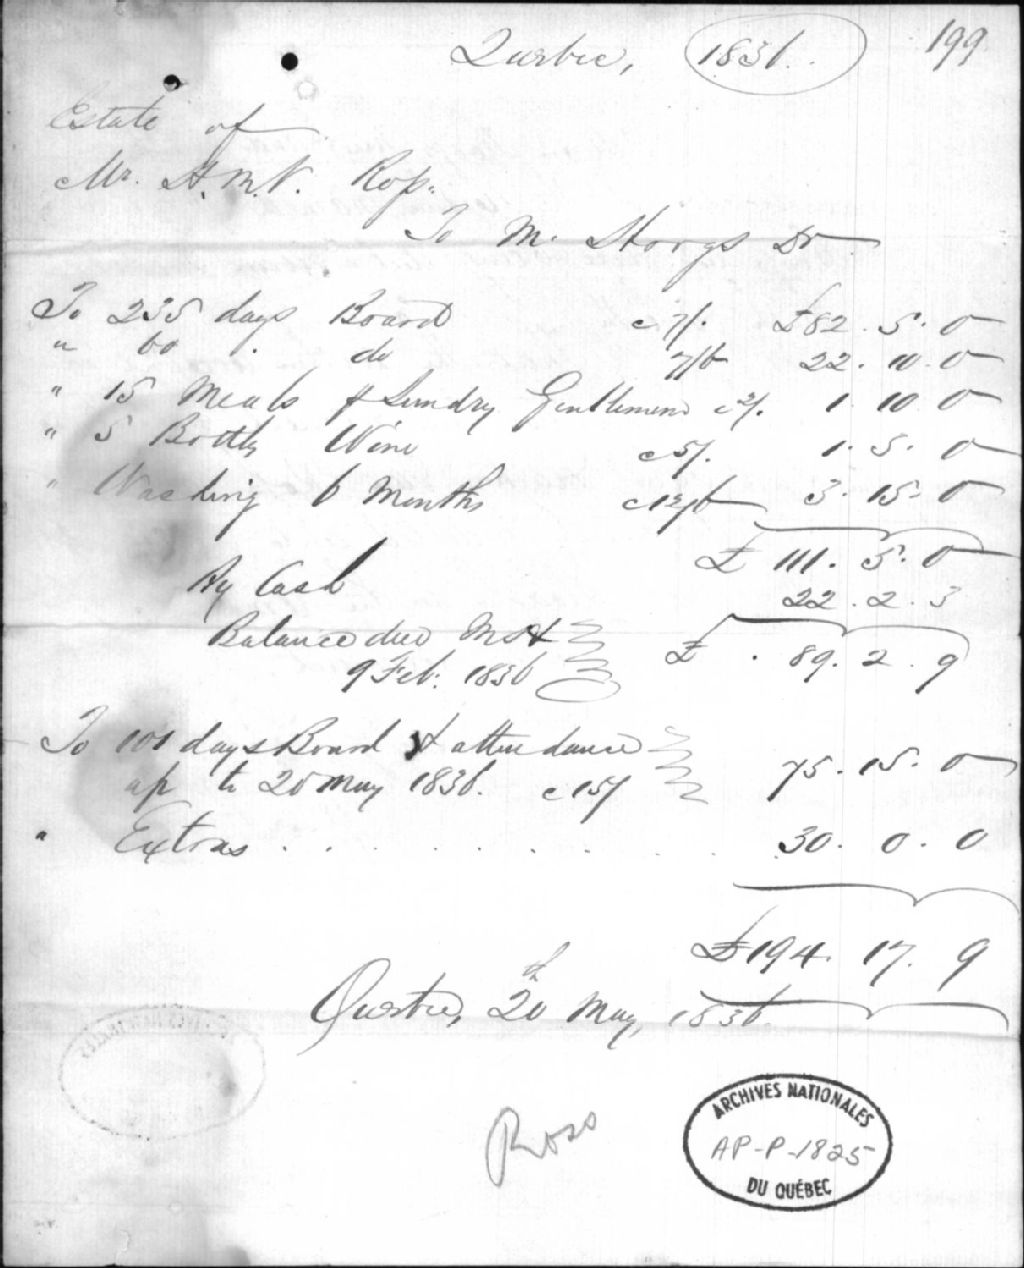 Quebec, 1836. 199
Estate of
Mr. H.M.N. Ross.
To M. Dr
To 235 days Board @ 7/. £82. 5. 0
" 60 . do 7/6 22. 10. 0
" 15 Meals of Sundry Gentlemen @ 2/. 1. 10. 0
" 5 Bottles Wine @ 5/. 1. 5. 0
" Washing 6 Months @ 12/6 3. 15. 0
£ 111. 5. 0
By Cash 22. 2. 3
Balance due
9 Feb. 1836 £ . 89. 2. 9
To 101 days Board & attendance
up to 20 May 1836. @ 15/ 75. 15. 0
" Extras . . . . . . . . . 30. 0. 0
£194. 17. 9
Quebec, 20th May, 1836.
Ross
ARCHIVES NATIONALES
AP-P-1825
DU QUÉBEC